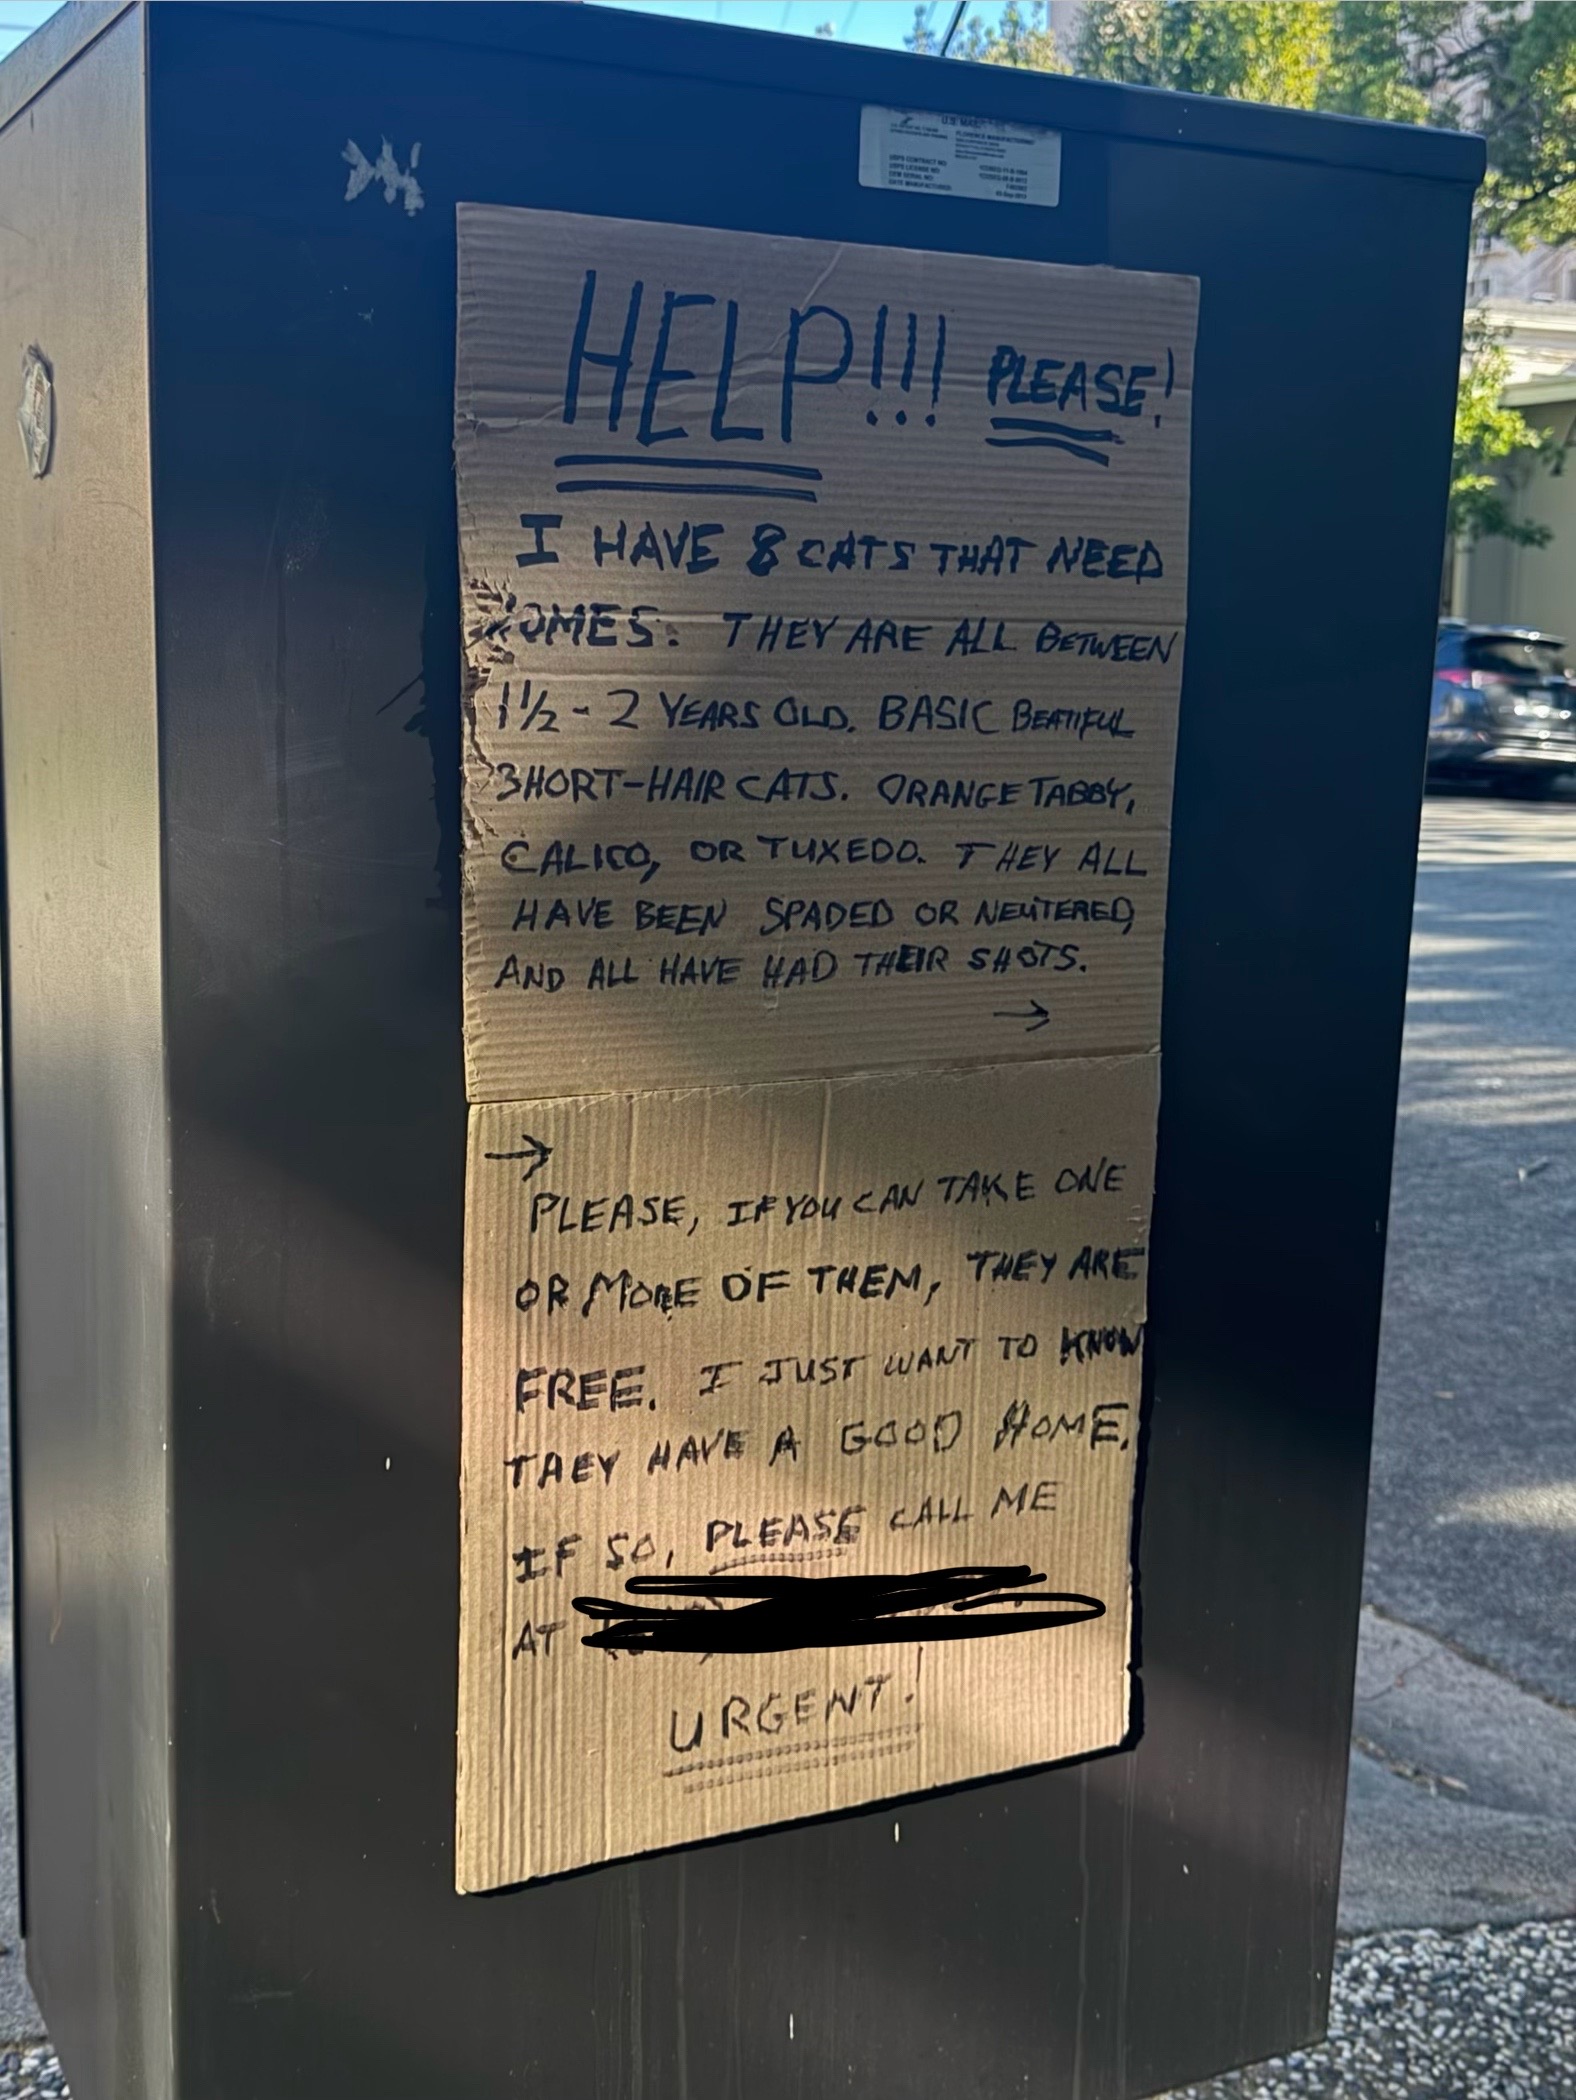 HELP!!! PLEASE!
I HAVE 8 CATS THAT NEED
HOMES. THEY ARE ALL BETWEEN
1 1/2 - 2 YEARS OLD. BASIC BEATIFUL
SHORT-HAIR CATS. ORANGE TABBY,
CALICO, OR TUXEDO. THEY ALL
HAVE BEEN SPADED OR NEUTERED,
AND ALL HAVE HAD THEIR SHOTS.
→
→
PLEASE, IF YOU CAN TAKE ONE
OR MORE OF THEM, THEY ARE
FREE. I JUST WANT TO KNOW
THEY HAVE A GOOD HOME.
IF SO, PLEASE CALL ME
AT
URGENT!